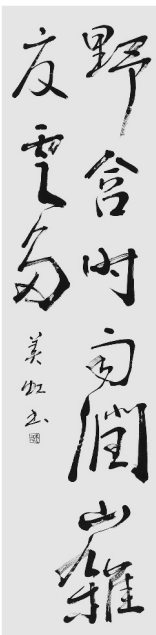 野含时雨润山雜
夏雲多
美虹书